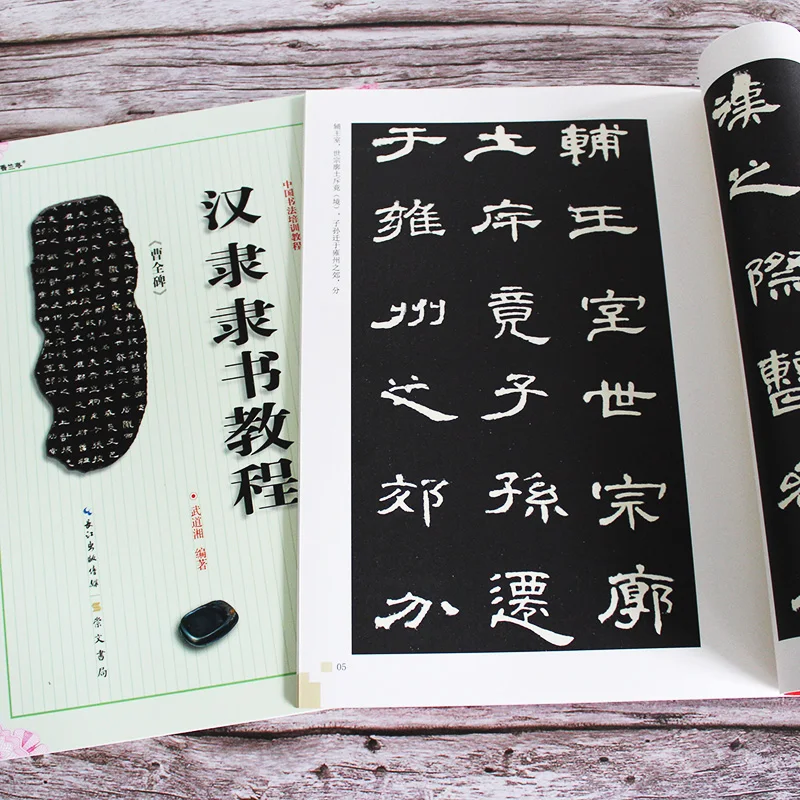 中国书法培训教程
汉隶隶书教程
《曹全碑》
武道湘 编著
长江出版传媒
崇文書局
辅王室，世宗廓土斥竟（境），子孙迁于雍州之郊，分
漢之際曹
輔王室世宗廓
土斥竟子孫遷
于雍州之郊分
05